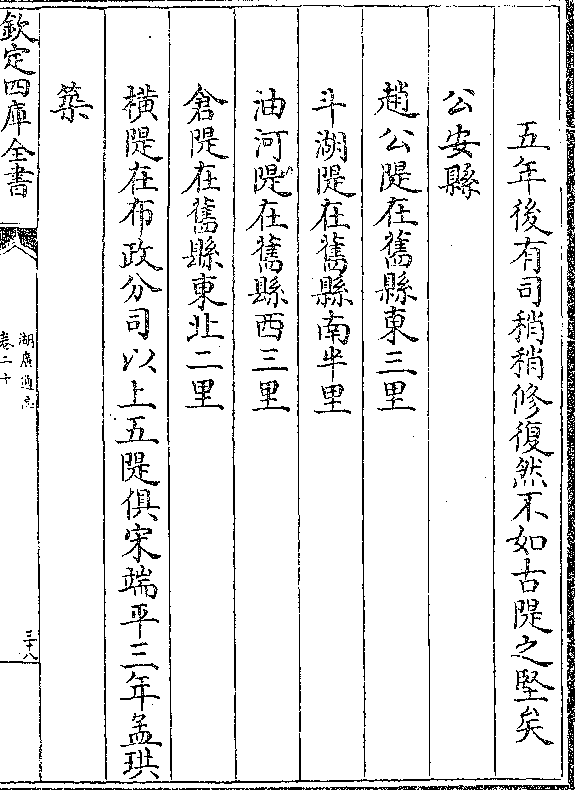 五年後有司稍稍修復然不如古隄之堅矣
公安縣
趙公隄在舊縣東三里
斗湖隄在舊縣南半里
油河隄在舊縣西三里
倉隄在舊縣東北二里
橫隄在布政分司以上五隄俱宋端平三年孟珙
築
欽定四庫全書
湖廣通志
卷二十
三十八